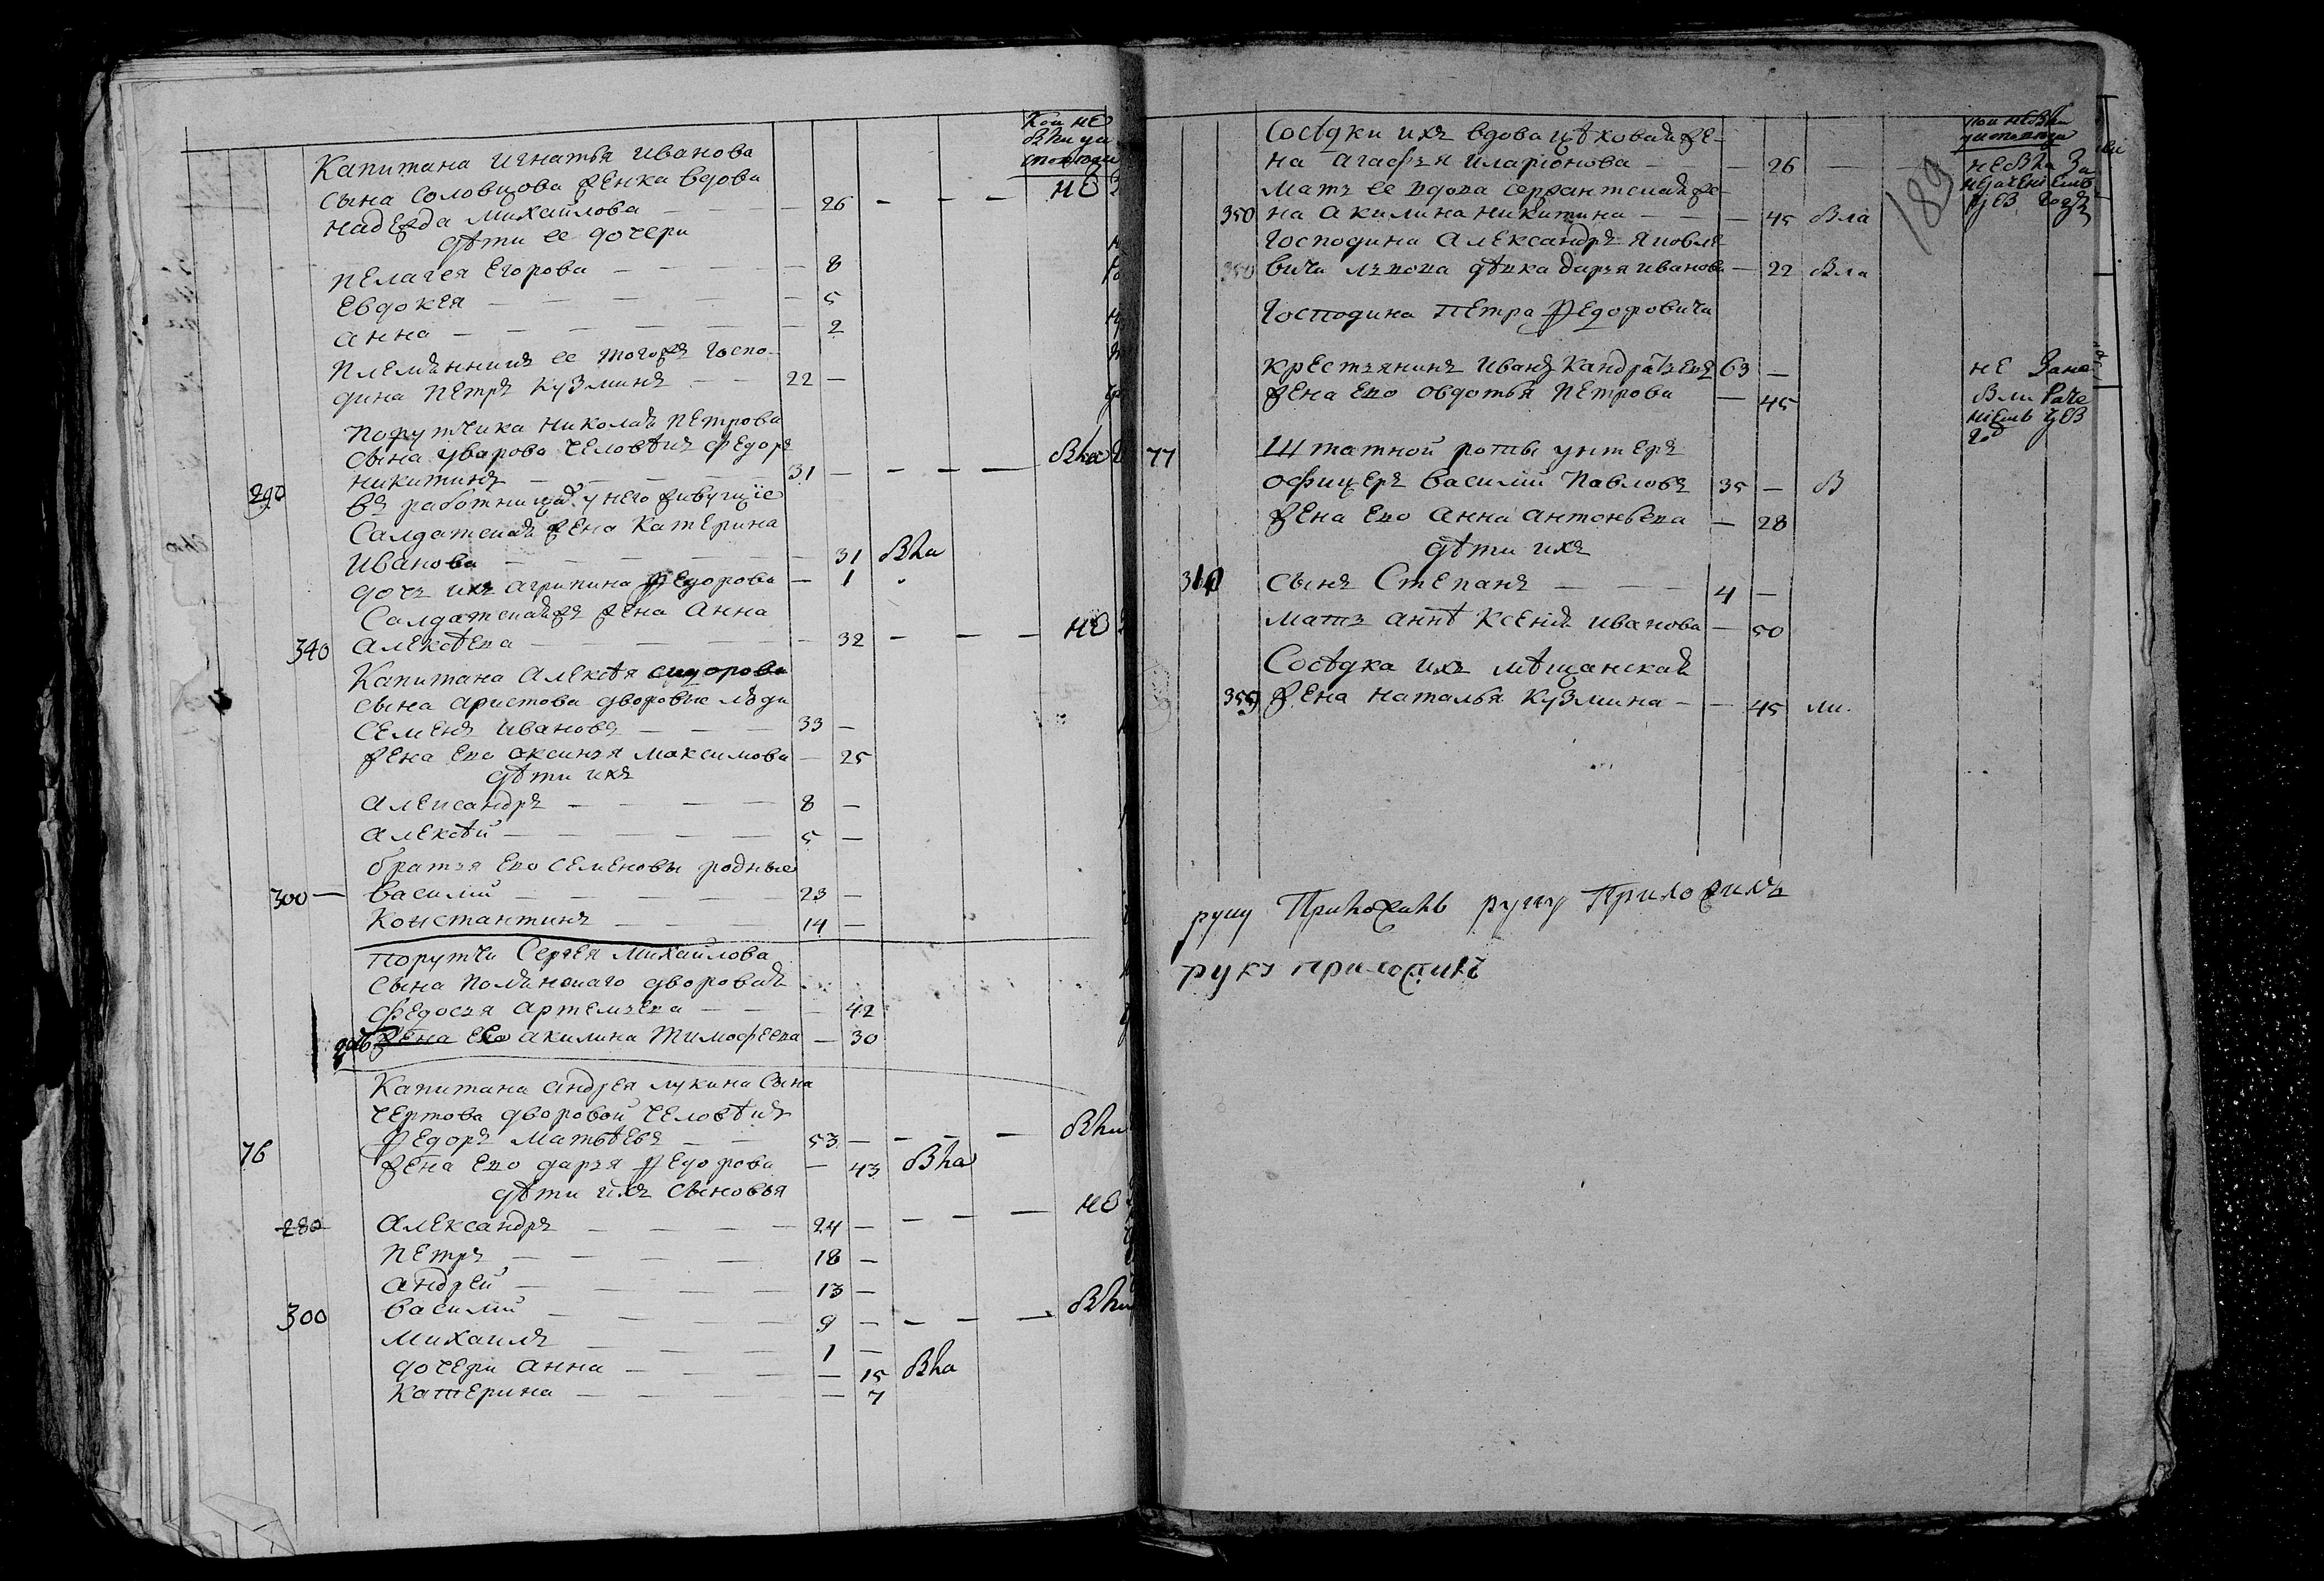 Кои не
вли ун
Капитана Игнатья Иванова
сына Соловцова женка вдова
надежда михайлова — — — 26 — — — не
дѣти ее дочери
пелагея Егорова — — — — 8
Евдокея — — — — — 5
анна — — — — — — 2
племянникъ ее тогожъ госпо-
дина петръ кузминъ — — 22 —
порутчика николая петрова
сына уварова человѣкъ федоръ
290 никитинъ — — — — 31 — — — — вла
въ работницахъ у него живущiе
Салдатская жена Катерина
Иванова — — — — 31 вла
дочь ихъ агрипина федорова — 1
Салдатскаяжъ жена Анна
340 алексѣева — — — — — 32 — — — не
Капитана алексѣя сидорова
сына аристова дворовые люди
Семенъ Ивановъ — — — 33 —
жена ево аксинья максимова — 25
дѣти ихъ
александръ — — — — 8 —
алексѣй — — — — — 5 —
братья ево семеновы родные
300 — василий — — — — — 23 —
Константинъ — — — 14 —
порутчи Сергея михайлова
сына полянскаго дворовая
федосья артемьева — — — 42
жена ево акилина тимофеева — 30
Капитана андрея лукина сына
чертова дворовой человѣкъ
76 федоръ матвѣевъ — — 53 — — — — вли
жена ево дарья федорова — 43 вла
дѣти ихъ сыновья
280 александръ — — — — 24 — — — — не
петръ — — — — — 18 —
андрей — — — — — 13 —
300 василий — — — — — 9 — — — — вли
михаилъ — — — — 1 —
дочери анна — — — — — 15 вла
катерина — — — — — 7
189
Сосѣдки ихъ вдова цѣховая же-
на агафья иларионова — — 26 — — не вла За
мать ее вдова сержантская же-
350 на акилина никитина — — — 45 вла
господина александръ яковле-
350 вича львова дѣвка дарья иванова — 22 вла
господина петра федоровича
крестьянинъ иванъ кандратьевъ 63 — не Зане
жена ево овдотья петрова — 45
77 Штатной роты унтеръ
офицеръ василий павловъ 35 — в
жена ево анна антоньева — 28
дѣти ихъ
360 сынъ Степанъ — — — 4 —
мать аннѣ ксения иванова — 50
Сосѣдка ихъ мѣщанская
359 жена наталья кузмина — — 45 ли.
руку Приложилъ руку Приложилъ
руку приложилъ